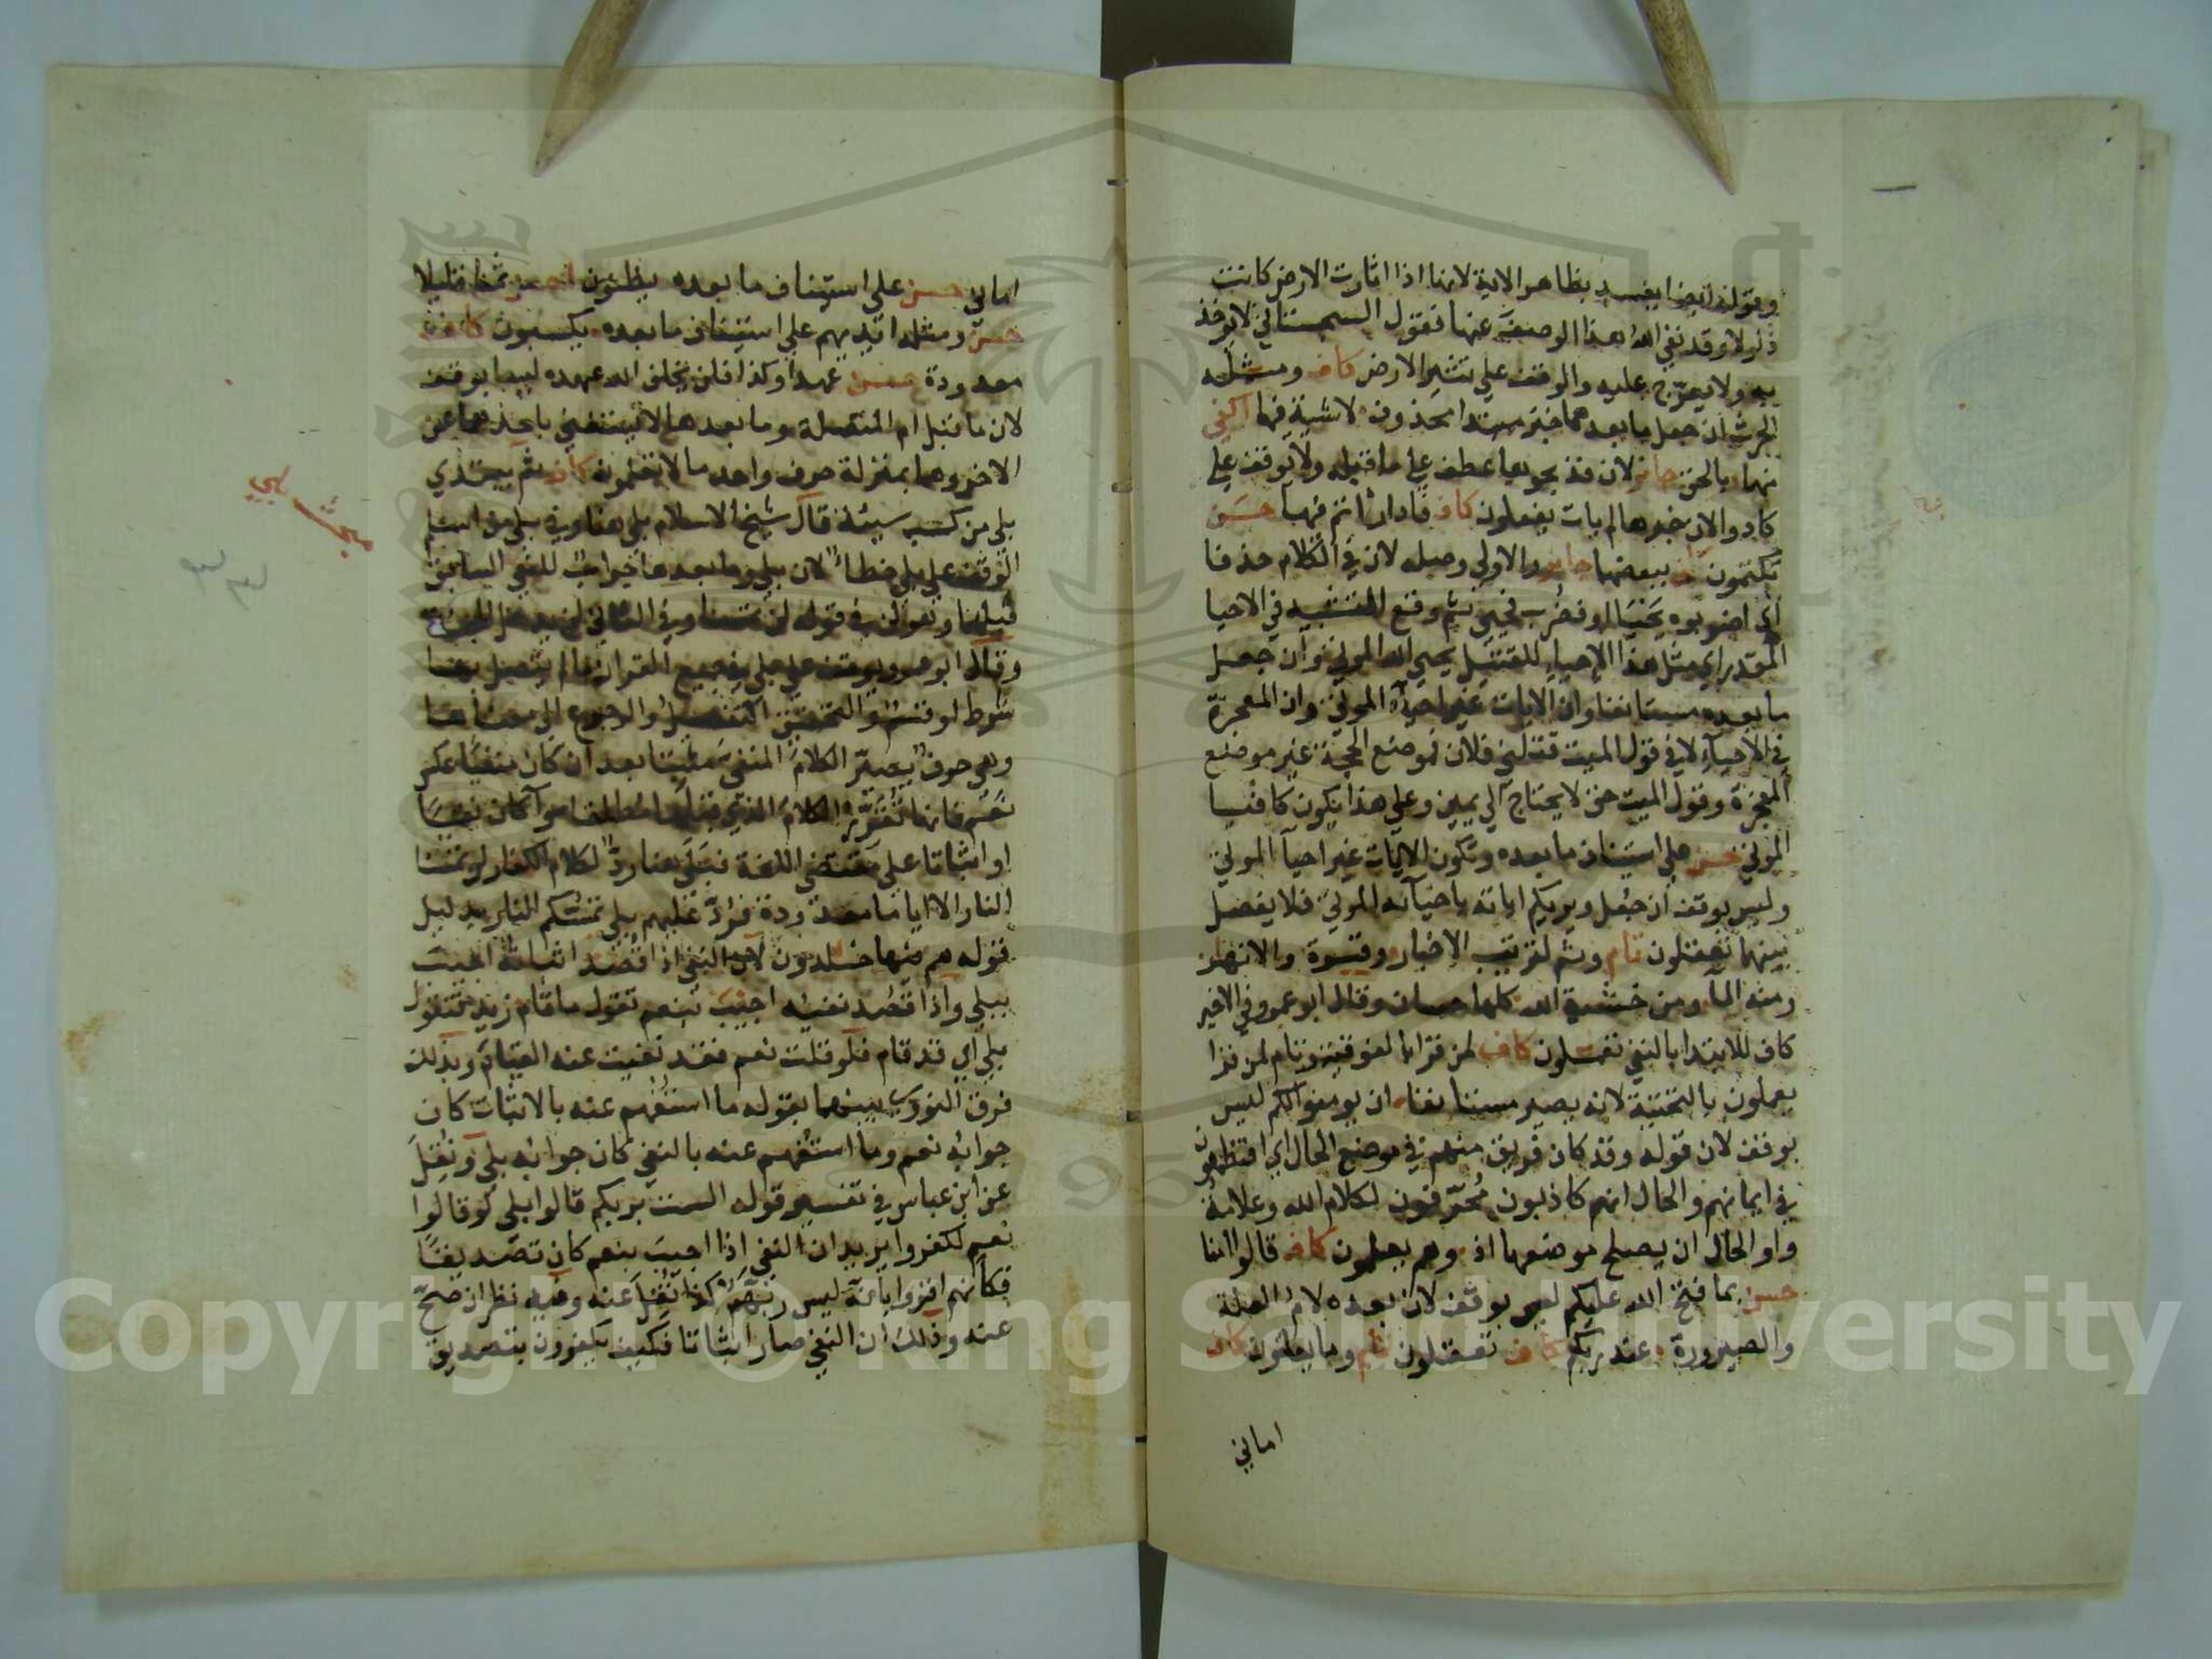 وقوله ايضا يفسد بظاهر الاية لانها اذا اثارت الارض كانت
ذلولا وقد نفى الله هذا الوصف عنها فقول السجستاني لا يوخذ
به ولا يعرج عليه والوقف على تثير الارض كاف ومثله
الحرث ان جعل ما بعدهما خبر مبتدا محذوف لاشية فيها اكفى
منهما بالحق جايز لان فذبحوها عطف على ما قبله ولا يوقف على
كادوا لان خبرها لم يات يفعلون كاف فادارأتم فيها حسن
تكتمون ببعضها جايز والاولى وصله لان في الكلام حذفا
اي اضربوه يحيا او فضرب فحيي ثم وقع التشبيه في الاحيا
المقدر اي مثل هذا الاحياء للقتيل يحيي الله الموتى وان جعل
ما بعده مستانفا وان الايات غير احيآء الموتى وان المعجزة
في الاحيآء لا في قول الميت قتلني فلان فموضع الحجة غير موضع
المعجزة وقول الميت حق لا يحتاج الى يمين وعلى هذا يكون كافيا
الموتى حسن على استيناف ما بعده وتكون الايات غير احيآ الموتى
وليس بوقف ان جعل ويريكم اياته باحيآئه الموتى فلا يفصل
بينهما تعقلون تام وثم لترتيب الاخبار وقسوة والانهار
ومنه المآ ومن خشية الله كلها حسان وقال ابو عمرو في الاخير
كاف للابتدا بالنفي تعملون كاف لمن قرا بالفوقية وتام لمن قرا
يعملون بالتحتية لانه يصير مستانفا ان يومنوا لكم ليس
بوقف لان قوله وقد كان فريق منهم في موضع الحال اي افتطمعون
في ايمانهم والحال انهم كاذبون محرفون لكلام الله وعلامة
واو الحال ان يصلح موضعها اذ وهم يعلمون كاف قالوا امنا
حسن بما فتح الله عليكم ليس بوقف لان بعده لام العلة
والصيرورة عند ربكم كاف تعقلون تام وما يعلنون كاف
اماني
اماني حسن على استيناف ما بعده يظنون احسن ثمنا قليلا
حسن ومثله ايديهم على استيناف ما بعده يكسبون كاف
معدودة حسن عهدا وكذا فلن يخلف الله عهده ليسا بوقف
لان ما قبل ام المتصلة وما بعدها لا يستغني باحدهما عن
الاخر وهما بمنزلة حرف واحد ما لا تعلمون كاف ثم يبتدي
بلى من كسب سيئة قال شيخ الاسلام بلى هنا وفي بلى من اسلم
الوقف على بلى خطأ لان بلى وما بعدها جواب للنفي السابق
قبلها وهو لن في قوله لن تمسنا وفي الثاني لن يدخل الجنة
وقال ابو عمرو يوقف على بلى في جميع القران ما لم يتصل بها
شرط او قسم والتحقيق التفصيل والرجوع الى معناها
وهي حرف يصير الكلام المنفي مثبتا بعد ان كان منفيا عكس
نعم فانها تقرر الكلام الذي قبلها مطلقا سوآ كان نفيا
او اثباتا على مقتضى اللغة فبلى هنا رد لكلام الكفار لن تمسنا
النار الا اياما معدودة فرد عليهم بلى تمسكم النار بدليل
قوله هم فيها خالدون لان النفي اذا قصد اثباته اجيب
ببلى واذا قصد نفيه اجيب بنعم تقول ما قام زيد فتقول
بلى اي قد قام فلو قلت نعم فقد نفيت عنه القيام وبذلك
فرق النووي بينهما بقوله ما استفهم عنه بالاثبات كان
جوابه نعم وما استفهم عنه بالنفي كان جوابه بلى ونقل
عن ابن عباس في تفسير قوله الست بربكم قالوا بلى لو قالوا
نعم لكفروا يريد ان النفي اذا اجيب بنعم كان تصديقا
فكانهم اقروا بانه ليس ربهم كذا نقل عنه وفيه نظر ان صح
عنه وذلك ان النفي صار اثباتا فكيف يكفرون بتصديق
مبحث بلى
Copyright © King Saud University